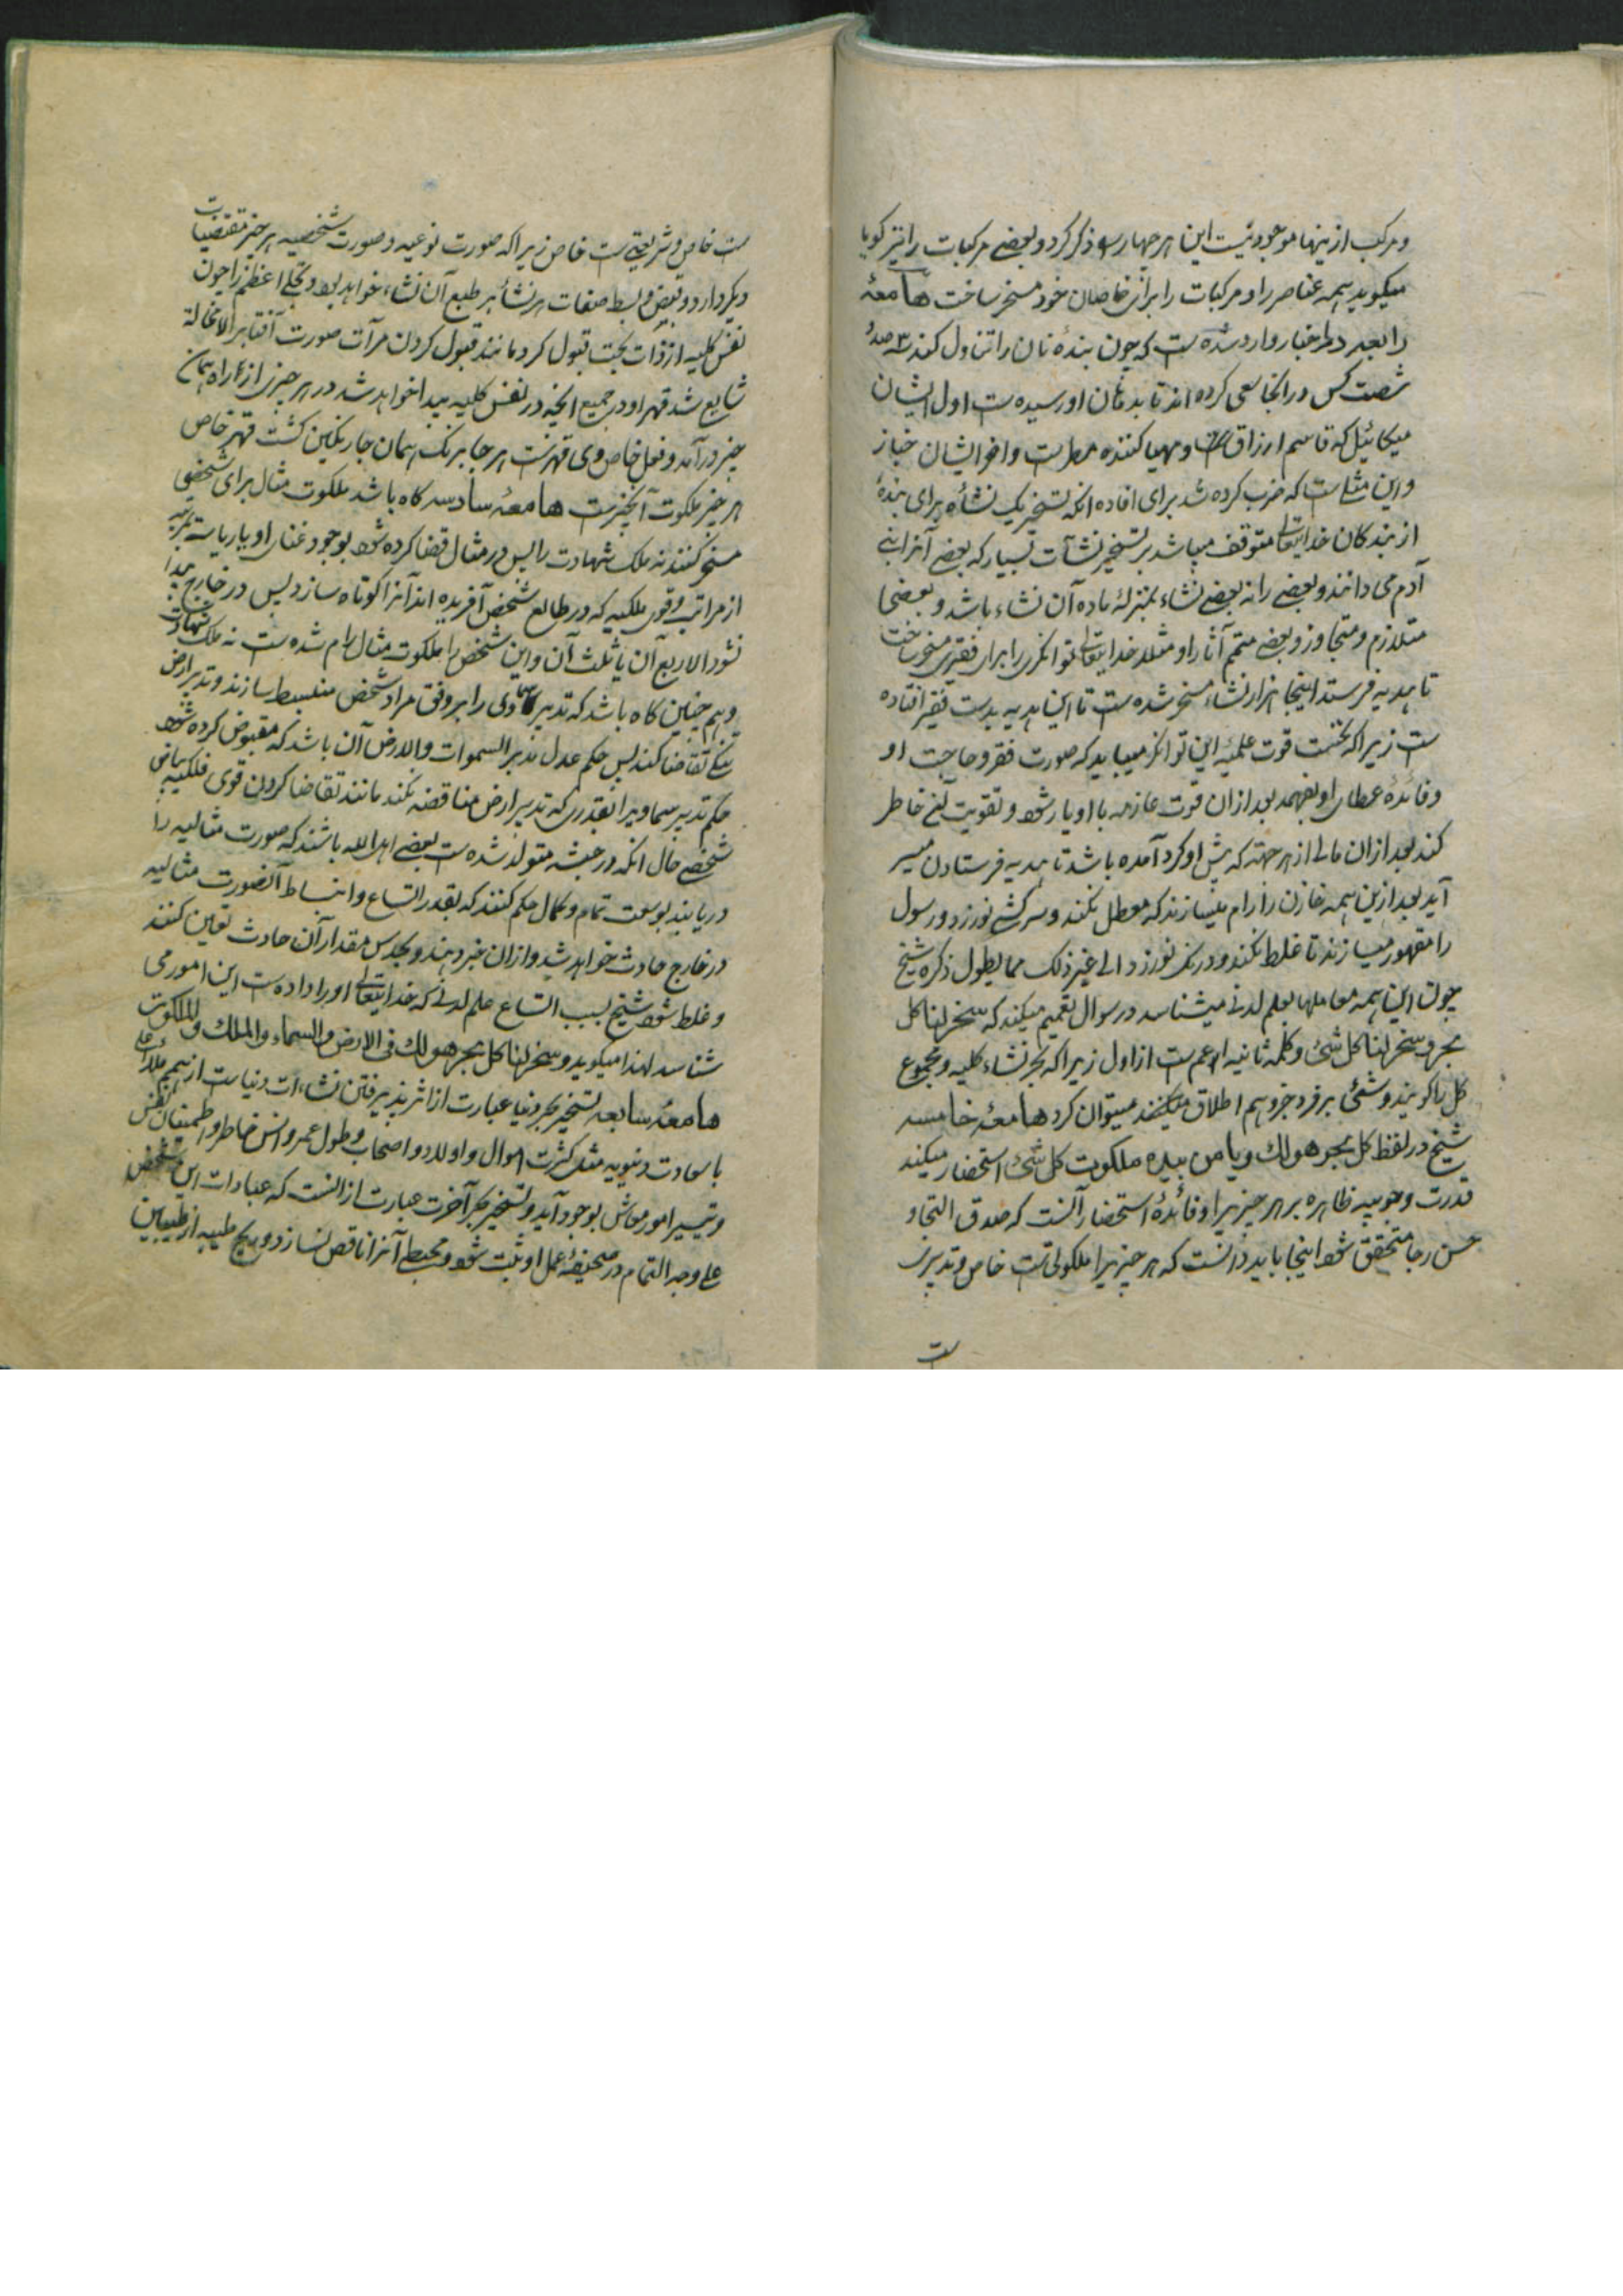 و مرکب ازینها موجود نیست این هر چهار را ذکر کرد و بعضی مرکبات را نیز گویا
میگوید همه عناصر را و مرکبات را برای خاصان خود مسخر ساخت هامعهٔ
رابعه در اخبار وارد شده است که چون بندهٔ نان را تناول کند سه صد و
شصت کس در آنجا سعی کرده اند تا بدهان او رسیده است اول ایشان
میکائیل که قاسم ارزاق است و مهیا کننده مطرست و آخر ایشان خباز
و این مثلی است که ضرب کرده شد برای افاده آنکه تسخیر یک نشأه برای بندهٔ
از بندگان خدایتعالی متوقف میباشد بر تسخیر نشآت بسیار که بعضی آنرا بنی
آدم می دانند و بعضی را نه بعضی نشاء بمنزلهٔ ماده آن نشاء باشد و بعضی
متلازم و متجاوز و بعضی متمم آثار او مثلا خدایتعالی توانگری را برای فقیری مسخر ساخت
تا هدیه فرستد اینجا هزار نشاء مسخر شده است تا این هدیه بدست فقیر افتاده
است زیرا که نخست قوت علمیه این توانگر میباید که صورت فقر و حاجت او
و فائدهٔ عطای او بفهمد بعد ازان قوت عازمه با او یار شود و تقویت خاطر
کند بعد ازان مالی از هر جهته که پیش او گرد آمده باشد تا هدیه فرستادن میسر
آید بعد ازین همه خازن را رام میسازند که معطل نکند و سرکشی نورزد و رسول
را مقهور میسازند تا غلط نکند و درنگ نورزد الی غیر ذلک مما یطول ذکره شیخ
چون این همه معاملها بعلم لدنی میشناسد در سوال تعمیم میکند که سخر لنا کل
بحر و سخر لنا کل شئ و کلمه ثانیه اعم است از اول زیرا که بحر نشاء کلیه و مجموع
کل را گویند و شئ بر فرد جزو هم اطلاق میکنند میتوان کرد هامعهٔ خامسه
شیخ در لفظ کل بحر هو لک و یا من بیده ملکوت کل شئ استحضار میکند
قدرت وجوبیه ظاهره بر هر چیز را و فائدهٔ استحضار آنست که صدق التجا و
حسن رجا متحقق شود اینجا باید دانست که هر چیز را ملکوتی است خاص و تدبیری
ست
ست خاص و شریعتی ست خاص زیرا که صورت نوعیه و صورت شخصیه هر چیز مقتضیات
دیگر دارد و قبض و بسط صفات هر نشأ بر طبع آن نشاء خواهد بود و تجلی اعظم را چون
نفس کلیه از ذات بحت قبول کرد مانند قبول کردن مرآت صورت آفتاب را لا محالة
شایع شد قهر او در جمیع آنچه در نفس کلیه پیدا خواهد شد در هر چیزی از راه همان
چیز در آمد و فعل خاص وی قهر نیست هر جا برنگ همان جا رنگین گشت قهر خاص
هر چیز ملکوت آنچیز ست هامعهٔ سادسه گاه باشد ملکوت مثال برای شخصی
مسخر کنند نه ملک شهادت را پس در مثال قضا کرده شود بوجود غنای او یا ریاست بمرتبه
از مراتب و قوی فلکیه که در طالع شخص آفریده اند آنرا کوتاه سازد پس در خارج پیدا
نشود الا ربع آن یا ثلث آن و این شخص را ملکوت مثال رام شده است نه ملک شهادت
و هم چنین گاه باشد که تدبیر سماوی را بر وفق مراد شخص منبسط سازند و تدبیر ارض
تنگی تقاضا کند پس حکم عدل مدبر السموات و الارض آن باشد که مقبوض کرده شود
حکم تدبیر سماوی را بقدری که تدبیر ارض مناقضه نکند مانند تقاضا کردن قوی فلکیه بیاض
شخصی حال آنکه در حبشه متولد شده است بعضی اهل الله باشند که صورت مثالیه را
دریابند بوسعت تمام و کمال حکم کنند که بقدر اتساع و انبساط آنصورت مثالیه
در خارج حادث خواهد شد و ازان خبر دهند و بحدس مقدار آن حادث تعین کنند
و غلط شود شیخ بسبب اتساع علم لدنی که خدایتعالی او را داده است این امور می
شناسد لهذا میگوید و سخر لنا کل بحر هو لک فی الارض و السماء و الملک و الملکوت
هامعهٔ سابعه تسخیر بحر دنیا عبارت از اثر پذیرفتن نشاءات دنیاست از همم ملاء اعلی
با سعادت دنیویه مثل کثرت اموال و اولاد و اصحاب و طول عمر و انس خاطر و اطمینان نفس
و تیسیر امور معاش بوجود آید و تسخیر بحر آخرت عبارت از انست که عبادات این شخص
علی وجه التمام در صحیفهٔ عمل او ثبت شود و محبط آنرا ناقص نسازد و هیچ طیبه از طیبات